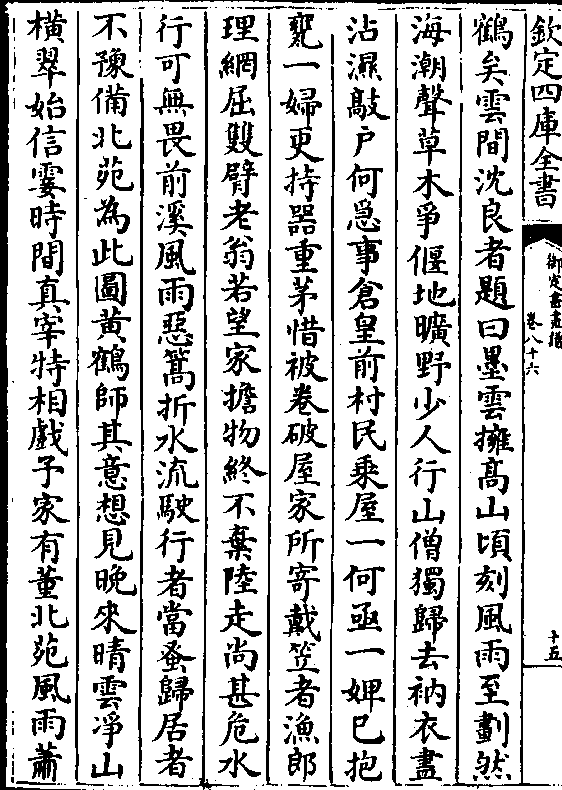 欽定四庫全書
御定書畫譜
卷八十六
十五
鶴矣雲間沈良者題曰墨雲擁髙山頃刻風雨至劃然
海潮聲草木爭偃地曠野少人行山僧獨歸去衲衣盡
沾濕敲户何急事倉皇前村民乘屋一何亟一婢已抱
甕一婦更持器重茅惜被卷破屋家所寄戴笠者漁郎
理網屈雙臂老翁若望家擔物終不棄陸走尚甚危水
行可無畏前溪風雨惡篙折水流駛行者當蚤歸居者
不豫備北苑為此圖黄鶴師其意想見晚來晴雲凈山
橫翠始信霎時間真宰特相戲予家有董北苑風雨蕭